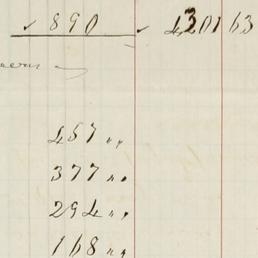 ✓ 890 ✓ 4301 63
457 〃
377 〃
294 〃
168 〃